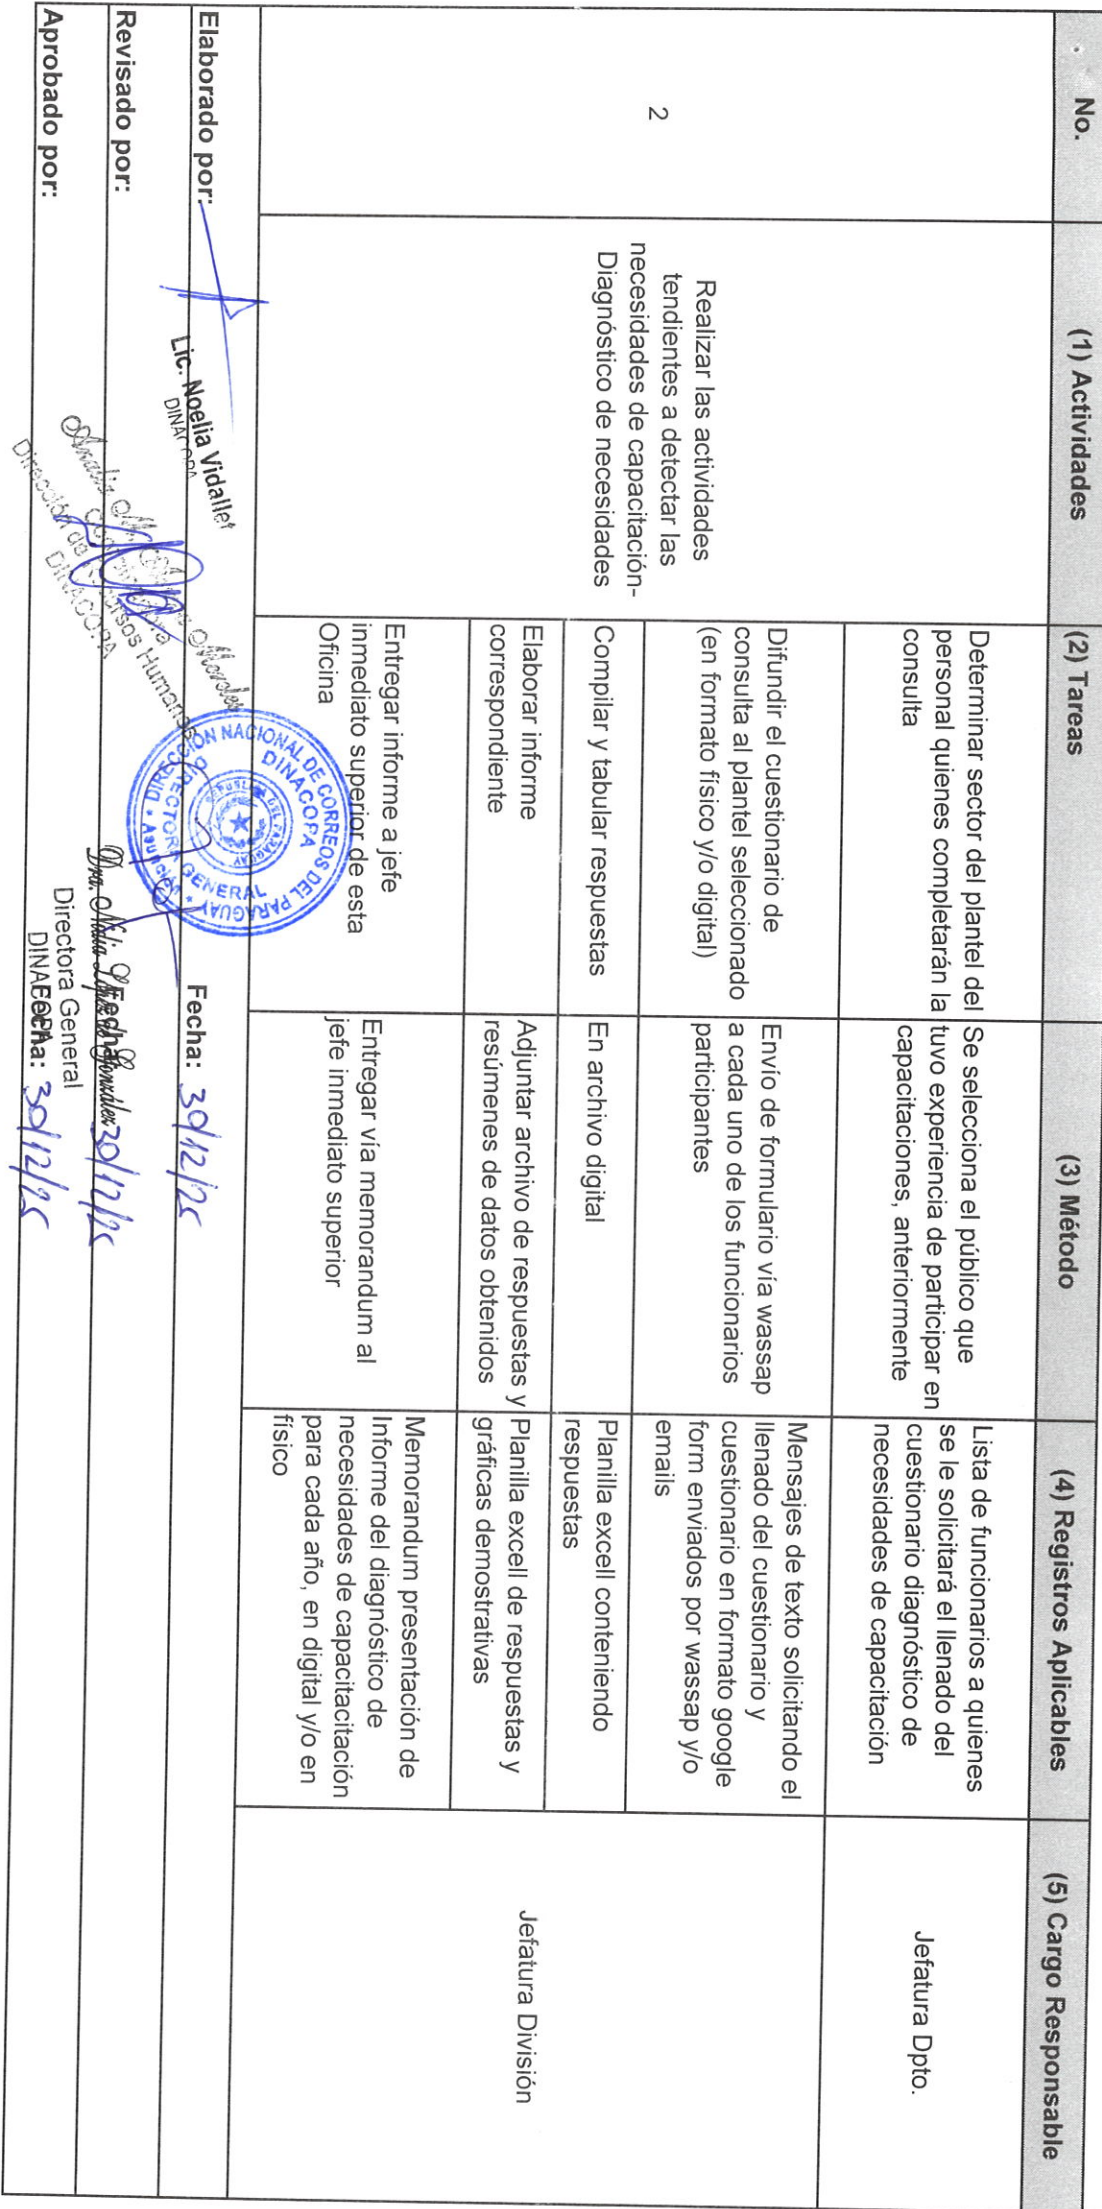 No.
(1) Actividades
(2) Tareas
(3) Método
(4) Registros Aplicables
(5) Cargo Responsable
2
Realizar las actividades
tendientes a detectar las
necesidades de capacitación-
Diagnóstico de necesidades
Determinar sector del plantel del
personal quienes completarán la
consulta
Se selecciona el público que
tuvo experiencia de participar en
capacitaciones, anteriormente
Lista de funcionarios a quienes
se le solicitará el llenado del
cuestionario diagnóstico de
necesidades de capacitación
Jefatura Dpto.
Difundir el cuestionario de
consulta al plantel seleccionado
(en formato físico y/o digital)
Envío de formulario vía wassap
a cada uno de los funcionarios
participantes
Mensajes de texto solicitando el
llenado del cuestionario y
cuestionario en formato google
form enviados por wassap y/o
emails
Jefatura División
Compilar y tabular respuestas
En archivo digital
Planilla excell conteniendo
respuestas
Elaborar informe
correspondiente
Adjuntar archivo de respuestas y
resúmenes de datos obtenidos
Planilla excell de respuestas y
gráficas demostrativas
Entregar informe a jefe
inmediato superior de esta
Oficina
Entregar vía memorandum al
jefe inmediato superior
Memorandum presentación de
Informe del diagnóstico de
necesidades de capacitacitación
para cada año, en digital y/o en
físico
Elaborado por:
Lic. Noelia Vidallet
DINACOPA
Fecha: 30/12/25
Revisado por:
Morales
Dirección de Recursos Humanos
DINACOPA
Fecha: 30/12/25
Aprobado por:
DIRECCIÓN NACIONAL DE CORREOS DEL PARAGUAY
DINACOPA
REPUBLICA DEL PARAGUAY
DIRECTORA GENERAL
ASUNCIÓN
Dra. Nidia López de González
Directora General
DINACOPA
Fecha: 30/12/25